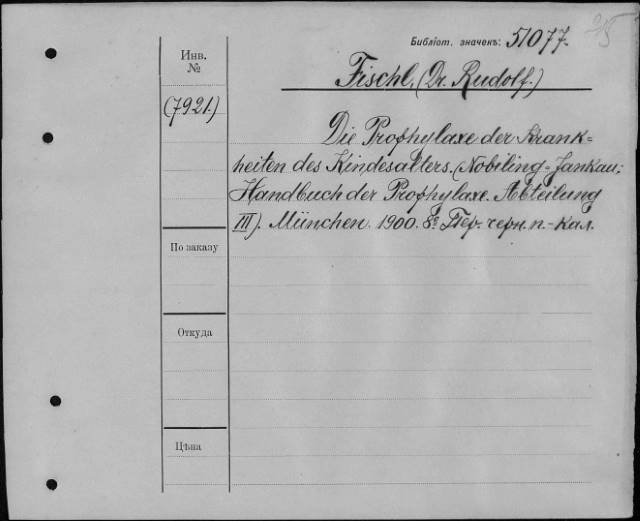 Библіот. значекъ: 51077.
Инв.
№
Fischl, (Dr. Rudolf.)
(7921.)
Die Prophylaxe der Krank=
heiten des Kindesalters. (Nobiling-Jankau;
Handbuch der Prophylaxe. Abteilung
III). München. 1900. 8º Пер. черн. п.-кал.
По заказу
Откуда
Цѣна